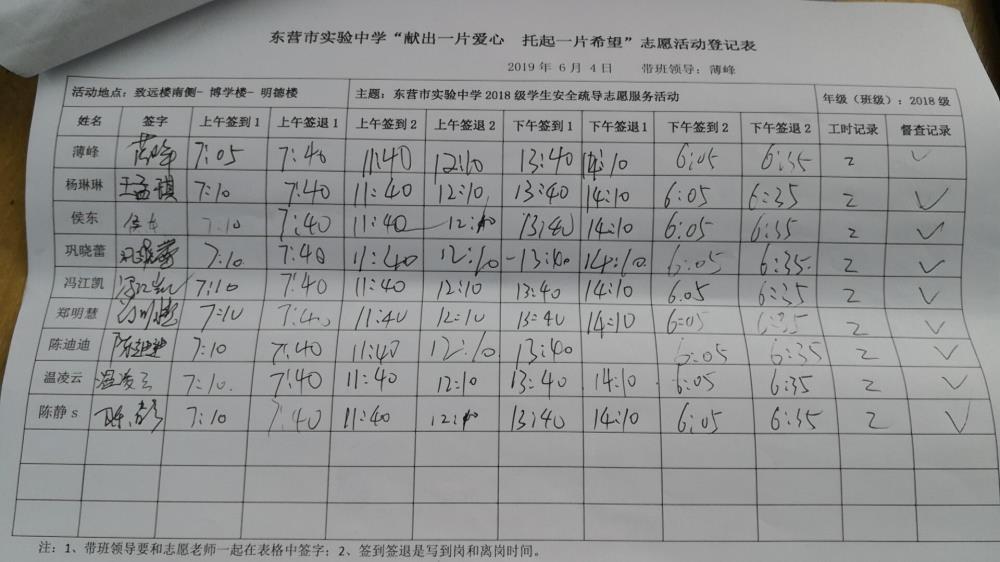 东营市实验中学“献出一片爱心 托起一片希望”志愿活动登记表
2019 年 6 月 4 日 带班领导：薄峰
活动地点：致远楼南侧- 博学楼- 明德楼 主题：东营市实验中学 2018 级学生安全疏导志愿服务活动 年级（班级）：2018 级
姓名 签字 上午签到 1 上午签退 1 上午签到 2 上午签退 2 下午签到 1 下午签退1 下午签到 2 下午签退 2 工时记录 督查记录
薄峰 薄峰 7:05 7:40 11:40 12:10 13:40 14:10 6:05 6:35 2 ✓
杨琳琳 王孟琪 7:10 7:40 11:40 12:10 13:40 14:10 6:05 6:35 2 ✓
侯东 侯东 7:10 7:40 11:40 12:10 13:40 14:10 6:05 6:35 2 ✓
巩晓蕾 巩晓蕾 7:10 7:40 11:40 12:10 13:40 14:10. 6:05 6:35. 2 ✓
冯江凯 冯江凯 7:10 7:40 11:40 12:10 13:40 14:10 6.05 6:35 2 ✓
郑明慧 7:10 7:40 11:40 12:10 13:40 14:10 6:05 6:35 2 ✓
陈迪迪 陈迪迪 7:10 7:40 11:40 12:10 13:40 6:05 6:35 2 ✓
温凌云 温凌云 7:10. 7:40 11:40 12:10 13:40 14:10 6:05 6:35 2 ✓
陈静 s 7:10 7:40 11:40 12:10 13:40 14:10 6:05 6:35 2 ✓
注：1、带班领导要和志愿老师一起在表格中签字；2、签到签退是写到岗和离岗时间。